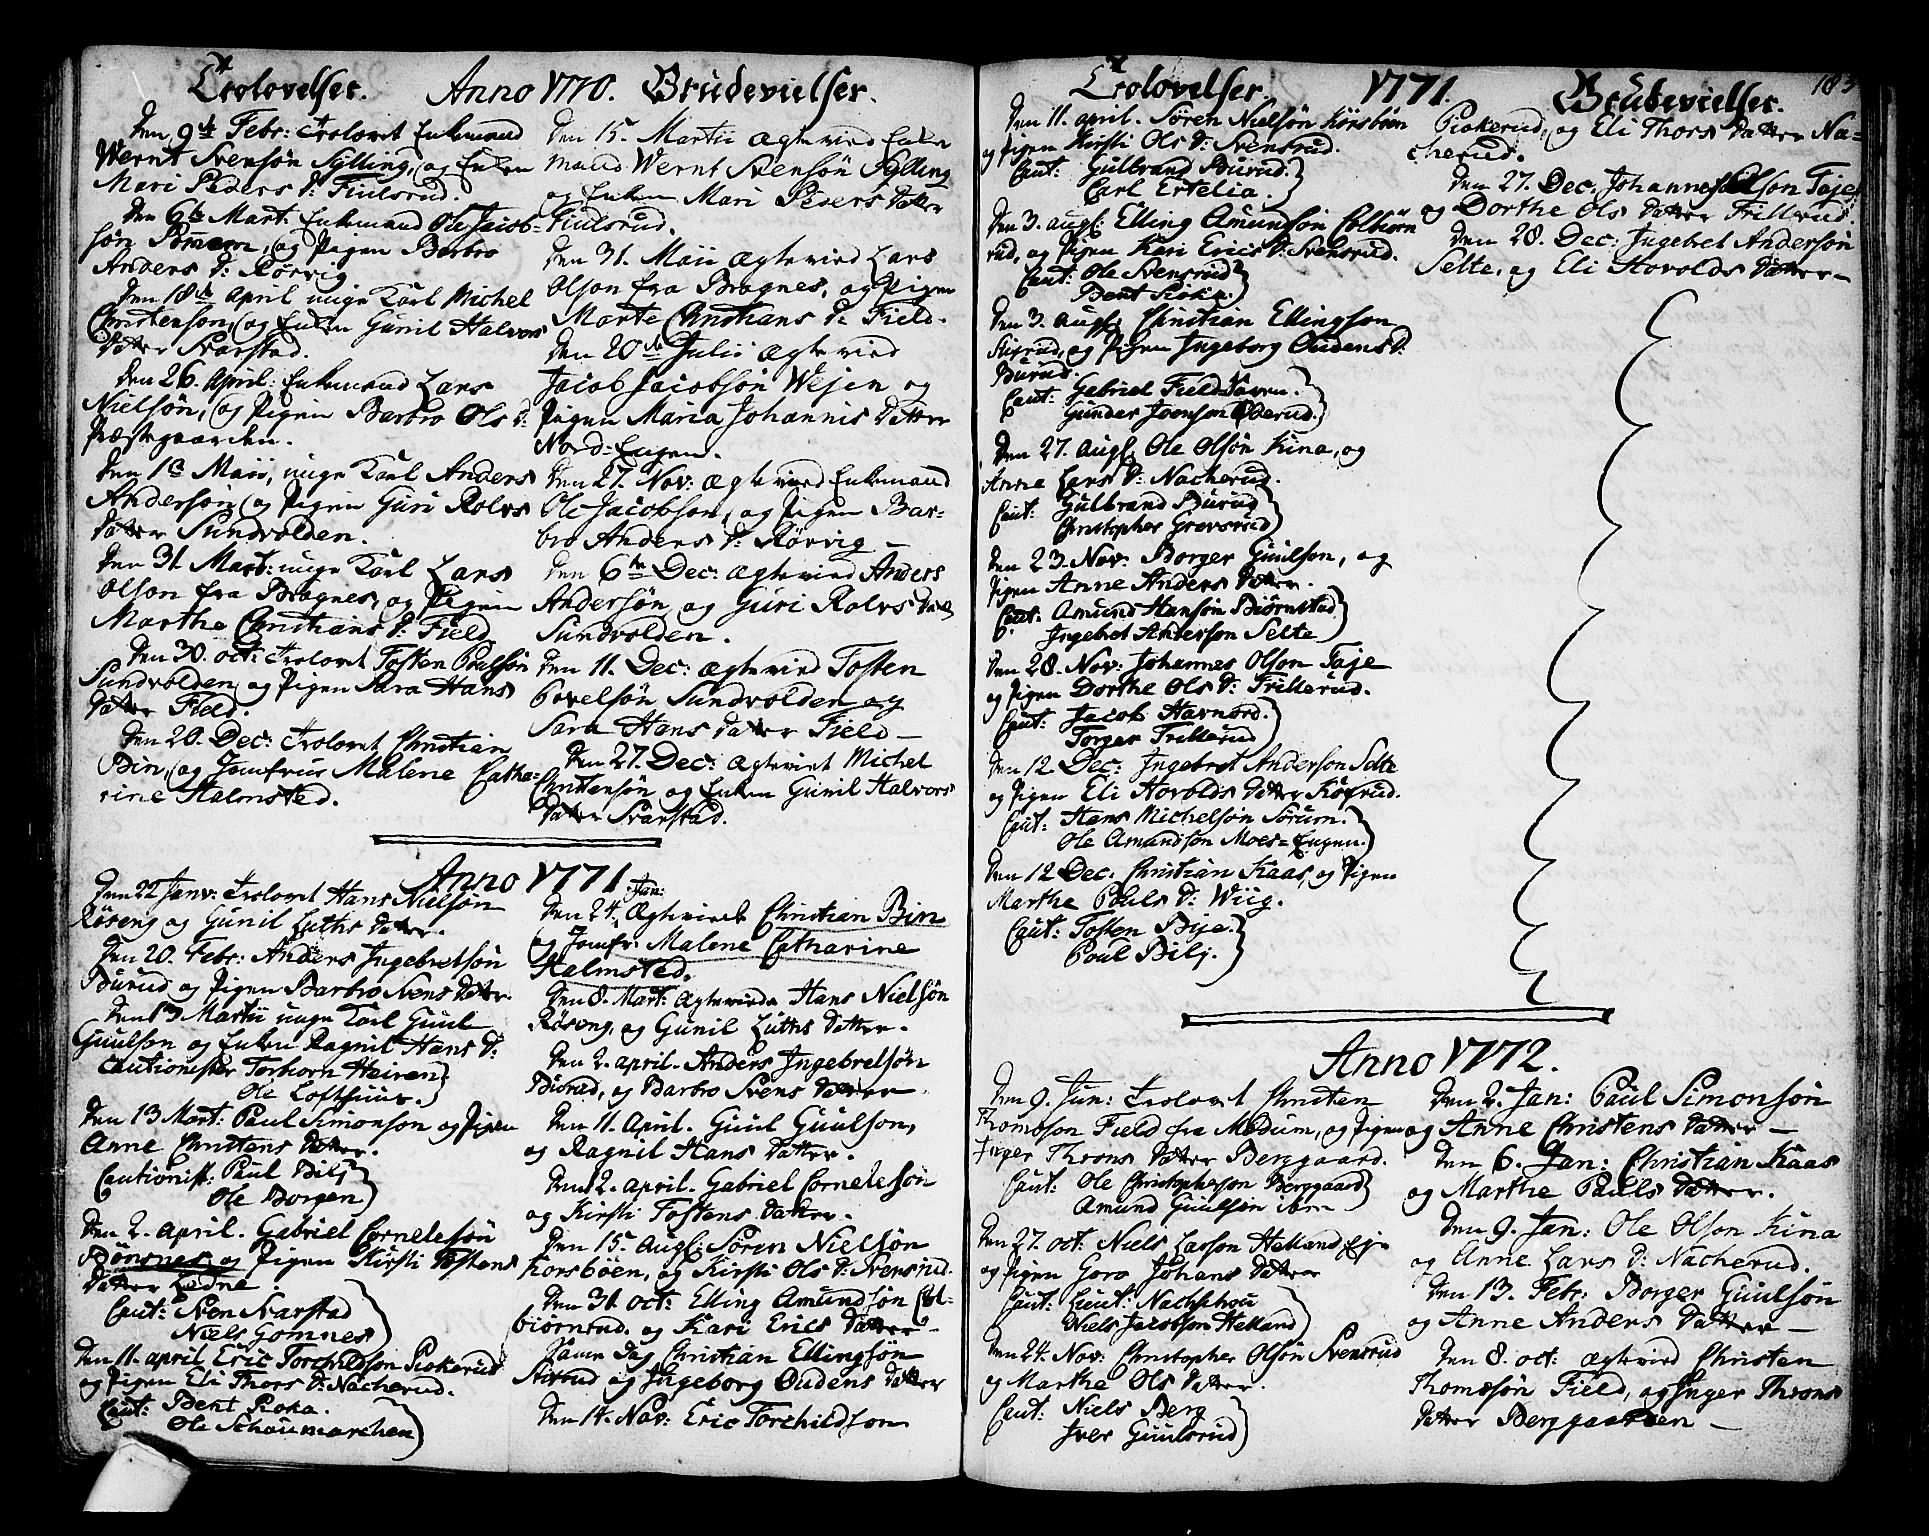 Trolovelser. Anno 1770. Brudevielser.
Den 9de Febr: Trolovet Enkemand
Wernt Svensøn Sylling, og Enken
Mari Peders D: Fiulsrud.
Den 6te Mart. Enkemand Ole Jacob-
søn, og Pigen Barbro
Anders D: Rørvig
Den 18de April unge Karl Michel
Christensøn, og Enken Gunil Halvors
Datter Svarstad.
Den 26. April: Enkemand Lars
Nielsøn, og Pigen Barbro Ols D:
Præstegaarden.
Den 13 Maii, unge Karl Anders
Andersøn, og Pigen Guri Rolvs
Datter Sundvolden.
Den 31. Mart: unge Karl Lars
Olson fra Bragnes, og Pigen
Marthe Christians D: Field
Den 30. oct: Trolovet Tosten Poulsøn
Sundvolden, og Pigen Sara Hans
Datter Field.
Den 20. Dec: Trolovet Christian
Bin, og Jomfrue Malene Catha-
rine Halmsted.
Den 15 Martii Ægteviед Enke
mand Wernt Svensøn Sylling
og Enken Mari Peders Datter
Fiulsrud.
Den 31. Maii Ægtevied Lars
Olson fra Bragnes, og Pigen
Marte Christians D: Field.
Den 20de Julii Ægtevied
Jacob Jacobsøn Wejen og
Pigen Maria Johannis Datter
Nord-Engen.
Den 27. Nov: Ægtevied Enkemand
Ole Jacobson, og Pigen Bar-
bro Anders D: Rørvig –
Den 6te Dec: Ægtevied Anders
Andersøn, og Guri Rolvs Datt
Sundvolden.
Den 11. Dec: Ægtevied Tosten
Povelsøn Sundvolden og
Sara Hans Datter Field –
Den 27. Dec: Ægteviet Michel
Christensøn og Enken Gunil Halvors
Datter Svarstad.
Anno 1771.
Den 22 Janv: Trolovet Hans Nielsøn
Røseng og Gunil Luths Datter.
Den 20. Febr: Anders Ingebretsøn
Burud og Pigen Barbro Svens Datter.
Den 13 Martii unge Karl Guul
Guulson og Enken Ragnil Hans D:
Cautionister Torborn Heiren
Ole Lofthuus.
Den 13 Mart: Paul Simonson og Pigen
Anne Christens Datter.
Cautionist: Paul Bilj
Ole Borgen
Den 2. April. Gabriel Cornelesøn
Rønsnes og Pigen Kirsti Tostens
Datter Ledne
Caut: Sven Svarstad
Niels Gomnes
Den 11. april Eric Torchildson Piokerud
og Pigen Eli Thors D: Nacherud.
Caut: Bent Roka.
Ole Schoumarchen
Jan:
Den 24. Ægteviet Christian Bin
og Jomfr: Malene Catharine
Halmsted.
Den 8. Mart: Ægteviede Hans Nielsøn
Røseng, og Gunil Luths Datter.
Den 2. april. Anders Ingebretsøn
Burud, og Barbro Svens Datter
Den 11. April. Guul Guulson,
og Ragnil Hans Datter.
Den 12. April. Gabriel Cornelesøn
og Kirsti Tostens Datter.
Den 15. Augs: Søren Nielsøn
Korsbøen, og Kirsti Ols D: Svensrud.
Den 31 oct: Elling Amundsøn Col-
biørnrud. og Kari Erics Datter –
Samme Dag Christian Ellingsøn
Stixrud og Ingeborg Oudens Datter
Den 14. Nov: Eric Torchildson
Trolovelser. 1771. Brudevielser. 183
Den 11. april. Søren Nielsøn Korsbøen
og Pigen Kirsti Ols D: Svensrud.
Caut: Gulbrand Burud.
Carl Ertelia.
Den 3. augs: Elling Amundsøn Colbiørn
rud, og Pigen Kari Erics D: Svensrud.
Caut: Ole Svensrud
Bent Roka.
Den 3. Augs: Christian Ellingson
Stixrud, og Pigen Ingeborg Oudens D:
Burud.
Caut: Gabriel Field
Gunder Joonson
Den 27. Augs: Ole Olsøn Kina, og
Anne Lars D: Nacherud.
Caut: Gulbrand Burud
Christopher Gravsrud
Den 23. Nov: Borger Guulson, og
Pigen Anne Anders Datter.
Caut: Amund Hansøn Biørnstad
Ingebret Anderson Selte
Den 28. Nov: Johannes Olson Taje
og Pigen Dorthe Ols D: Trillerud.
Caut: Jacob Havnord.
Torger Trillerud
Den 12 Dec: Ingebret Anderson Selte
og Pigen Eli Hovolds Datter Køxrud.
Caut: Hans Michelsøn Sørum.
Ole Amundsøn Moes-Engen.
Den 12 Dec: Christian Kaas, og Pigen
Marthe Pouls D: Wiig.
Caut: Tosten Bije.
Poul Bilj.
Piokerud, og Eli Thors Datter Na-
cherud.
Den 27. Dec: Johannes Olson Taje
og Dorthe Ols Datter Trillerud.
Den 28. Dec: Ingebret Andersøn
Selte, og Eli Hovolds Datter –
Anno 1772.
Den 9. Jun: Trolovet Christen
Thomøson Field fra Modum, og Pigen
Inger Throns Datter Berggaard.
Caut: Ole Christopherson Berggaard
Amund Guulsøn ibm
Den 27. oct: Niels Larson Helland Eje
og Pigen Goro Johans Datter
Caut: Lieut: Nachschou
Niels Jacobson Helland
Den 24. Nov: Christopher Olsøn Svensrud
og Marthe Ols Datter.
Caut: Niels Berg
Iver Guulsrud
Den 2. Jan: Paul Simonsøn
og Anne Christens Datter –
Den 6. Jan: Christian Kaas
og Marthe Pauls Datter.
Den 9. Jan: Ole Olson Kina
og Anne Lars D: Nacherud.
Den 13. Febr: Borger Guulsøn
og Anne Anders Datter –
Den 8. oct: Ægtevied Christen
Thomesøn Field, og Inger Throns
Datter Berggaarden –